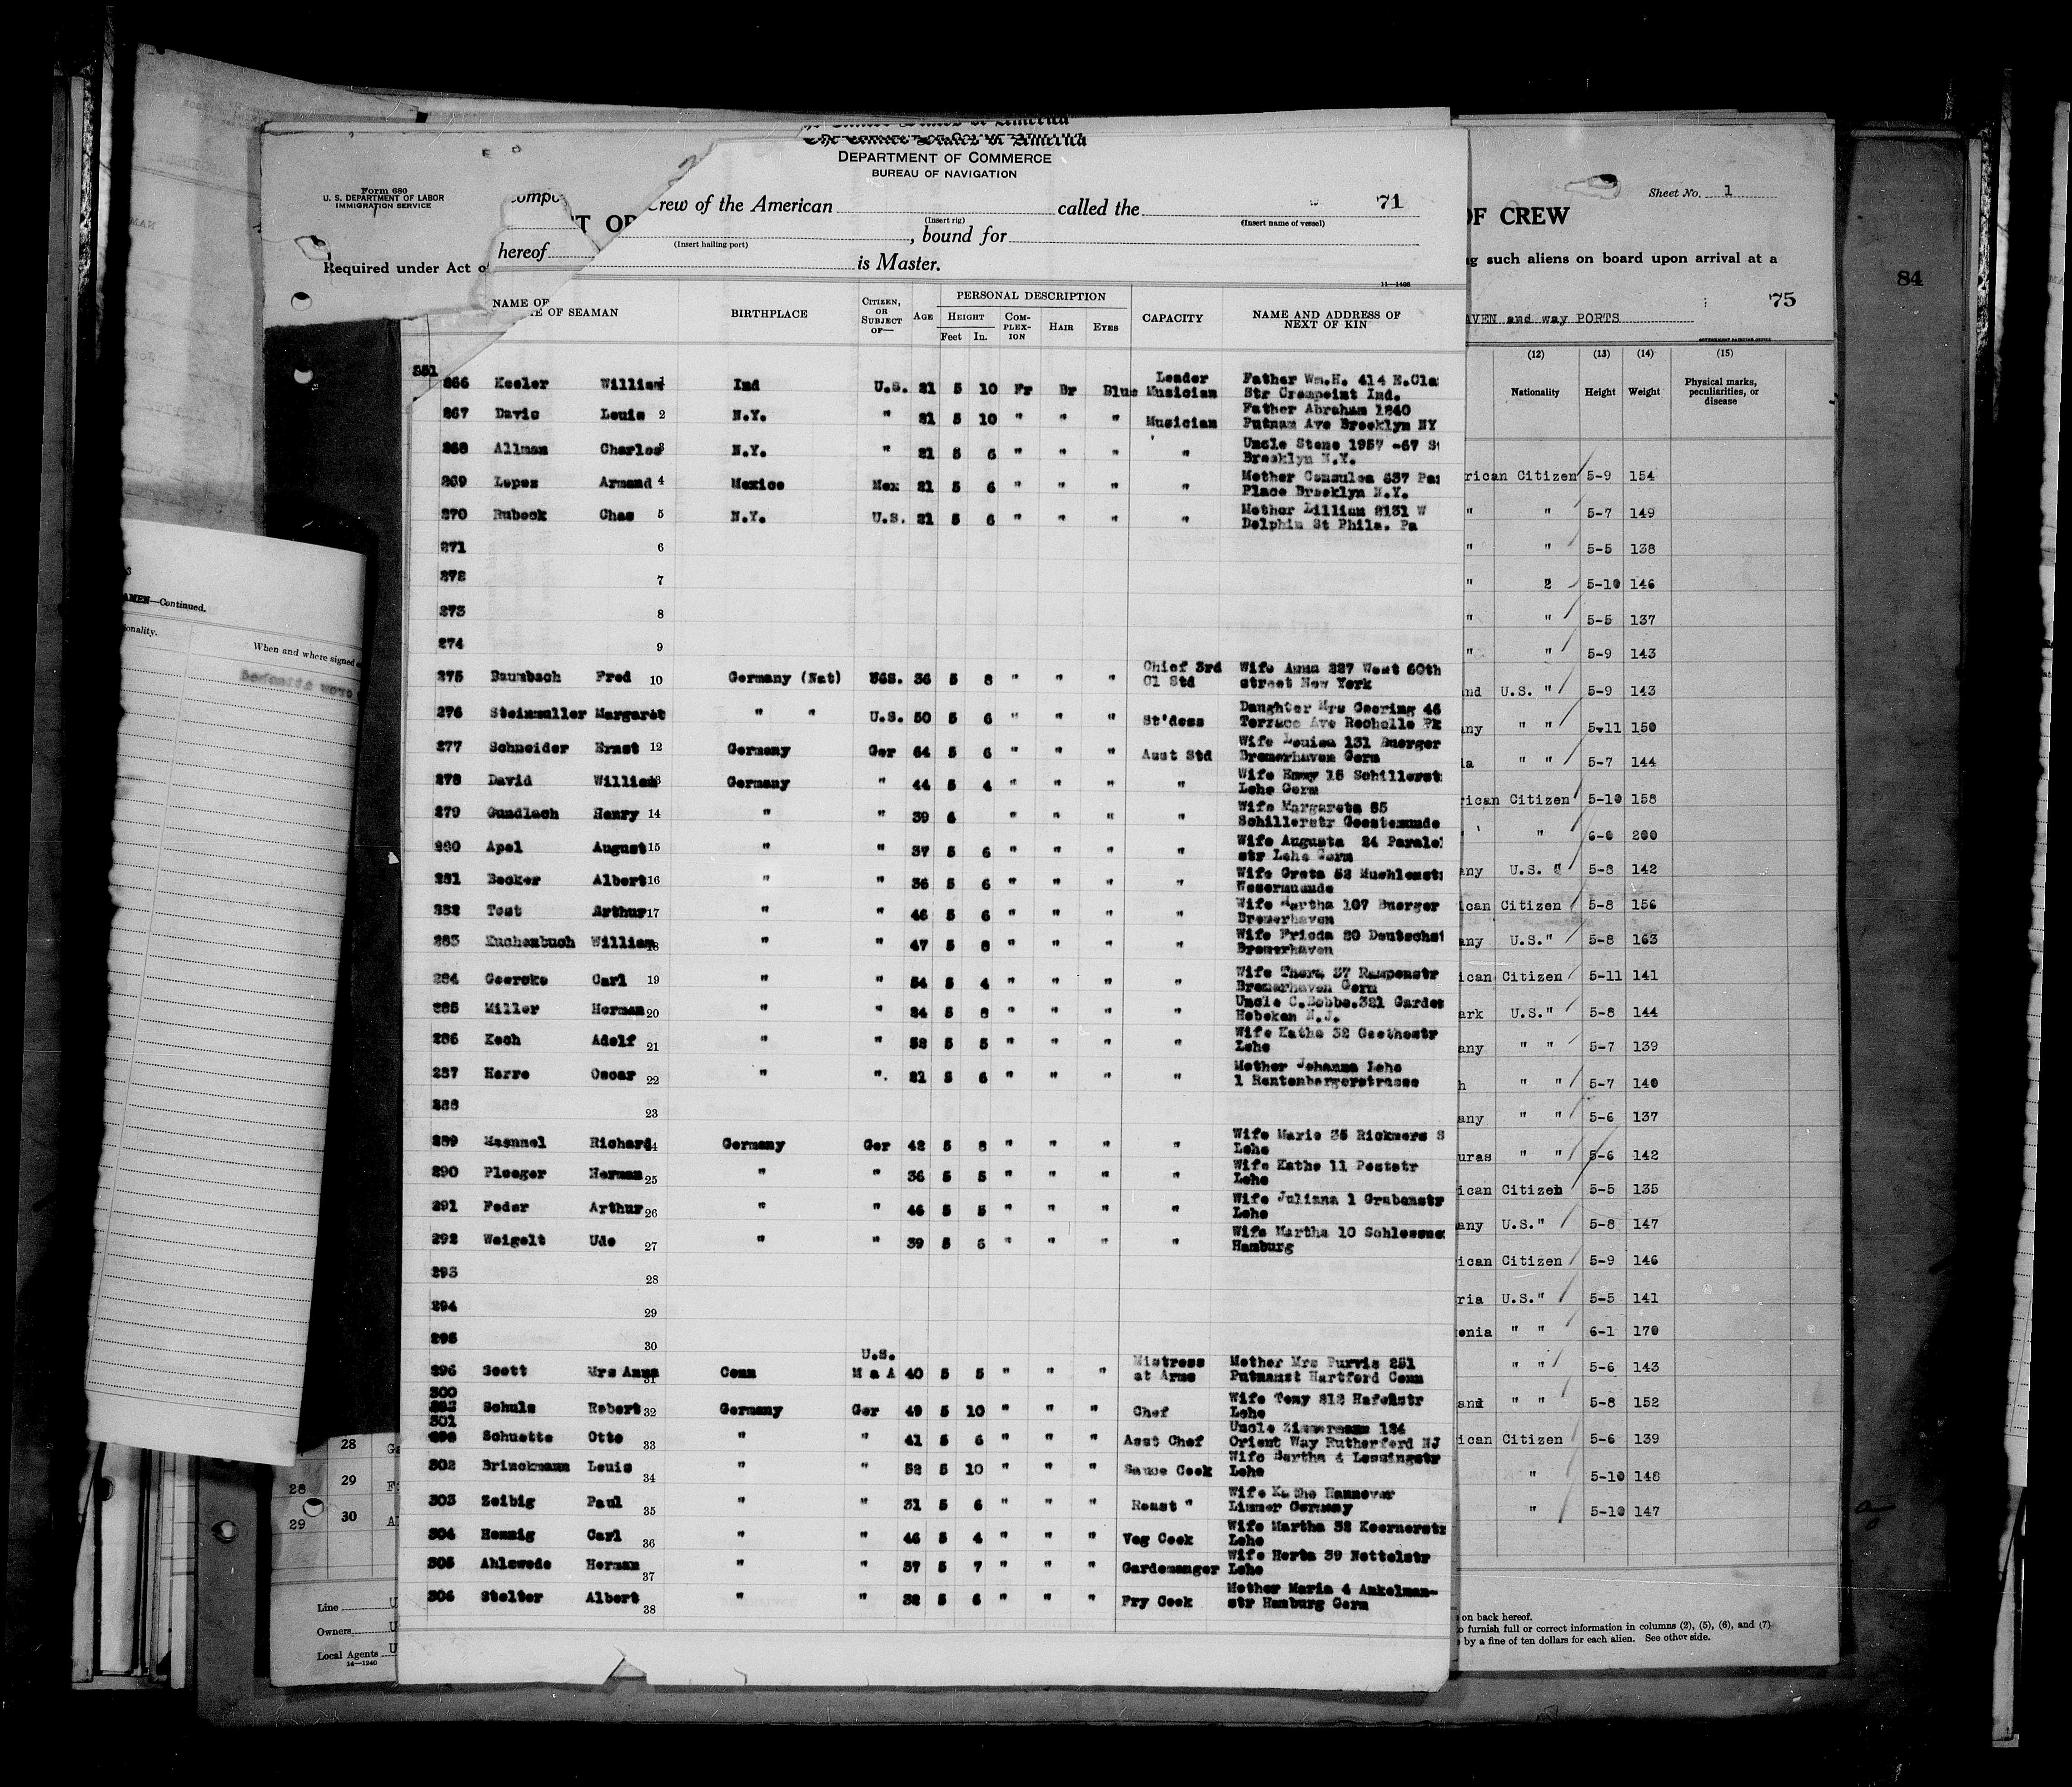 The United States of America
DEPARTMENT OF COMMERCE
BUREAU OF NAVIGATION
Form 680
U. S. DEPARTMENT OF LABOR
IMMIGRATION SERVICE
Crew of the American called the 71
(Insert rig) (Insert name of vessel)
, bound for
(Insert hailing port)
hereof is Master.
Required under Act
11—1408
NAME OF
OF SEAMAN
BIRTHPLACE
CITIZEN, OR SUBJECT OF—
AGE
PERSONAL DESCRIPTION
HEIGHT
Feet In.
COMPLEXION
HAIR
EYES
CAPACITY
NAME AND ADDRESS OF NEXT OF KIN
266 Keeler William 1 Ind U.S. 21 5 10 Fr Br Blue Leader Musician Father Wm.H. 414 E.Cla
Str Crompoint Ind.
267 Davis Louis 2 N.Y. " 21 5 10 " " " Musician Father Abraham 1240
Putnam Ave Brooklyn NY
268 Allman Charles 3 N.Y. " 21 5 6 " " " " Uncle Stone 1957 -67 S
Brooklyn N.Y.
269 Lopez Armand 4 Mexico Mex 21 5 6 " " " " Mother Consulea 637
Place Brooklyn N.Y.
270 Rubeck Chas 5 N.Y. U.S. 21 5 6 " " " " Mother Lillian 2131 W
Dolphin St Phila. Pa
271 6
272 7
273 8
274 9
275 Baumbach Fred 10 Germany (Nat) 36 5 8 " " " Chief 3rd Cl Std Wife Anna 227 West 60th
street New York
276 Steinmuller Margaret " " U.S. 50 5 6 " " " St'dess Daughter Mrs Geering 46
Terrace Ave Rochelle Pk
277 Schneider Ernst 12 Germany Ger 64 5 6 " " " Asst Std Wife Louisa 131 Buerger
Bremerhaven Germ
278 David William 13 Germany " 44 5 4 " " " " Wife Emmy 18 Schillerst
Lehe Germ
279 Gundlach Henry 14 " " 39 6 " " " " Wife Margareta 65
Schillerstr Geestemunde
280 Apel August 15 " " 37 5 6 " " " " Wife Augusta 24
str Lehe Germ
281 Becker Albert 16 " " 36 5 6 " " " " Wife Greta 52
Wesermuende
282 Tost Arthur 17 " " 46 5 6 " " " " Wife Martha 107 Buerger
Bremerhaven
283 Kuchenbuch William 18 " " 47 5 8 " " " " Wife Frieda 20
Bremerhaven
284 Geercke Carl 19 " " 54 5 4 " " " " Wife Thora 37 Rampenstr
Bremerhaven Germ
285 Miller Herman 20 " " 24 5 8 " " " " Uncle C.Bobbe.321 Garden
Hoboken N.J.
286 Koch Adolf 21 " " 58 5 5 " " " " Wife Kathe 32 Goethestr
Lehe
287 Herre Oscar 22 " ". 21 5 6 " " " " Mother Johanna Lehe
1 Rentenbergerstrasse
288 23
289 Maennel Richard 24 Germany Ger 42 5 8 " " " " Wife Marie 35 Rickmers S
Lehe
290 Ploeger Herman 25 " " 36 5 5 " " " " Wife Kathe 11 Poststr
Lehe
291 Feder Arthur 26 " " 46 5 5 " " " " Wife Juliana 1 Grabenstr
Lehe
292 Weigelt Udo 27 " " 39 5 6 " " " " Wife Martha 10
Hamburg
293 28
294 29
295 30
296 Scott Mrs Anna 31 Conn U.S. 40 5 5 " " " Mistress at Arms Mother Mrs Purvis 251
Putnamst Hartford Conn
300 Schulz Robert 32 Germany Ger 49 5 10 " " " Chef Wife Tony 212 Hafenstr
Lehe
301 Schuette Otto 33 " " 41 5 6 " " " Asst Chef Uncle Zimmermann 124
Orient Way Rutherford NJ
302 Brinckmann Louis 34 " " 52 5 10 " " " Sauce Cook Wife Bertha 4 Lessingstr
Lehe
303 Zeibig Paul 35 " " 31 5 6 " " " Roast " Wife Kathe Hannover
Limmer Germany
304 Hennig Carl 36 " " 46 5 4 " " " Veg Cook Wife Martha 32 Koernerstr
Lehe
305 Ahlswede Herman 37 " " 37 5 7 " " " Gardemanger Wife Herta 39 Nettelstr
Lehe
306 Stelter Albert 38 " " 32 5 6 " " " Fry Cook Mother Maria 4 Ankelman-
str Hamburg Germ
Sheet No. 1
OF CREW
such aliens on board upon arrival at a
75
AVEN and way PORTS
84
(12) (13) (14) (15)
Nationality Height Weight Physical marks, peculiarities, or disease
rican Citizen 5-9 154
" " 5-7 149
" " 5-5 138
" 2 5-10 146
" " 5-5 137
" " 5-9 143
nd U.S. " 5-9 143
ny " " 5-11 150
a " " 5-7 144
rican Citizen 5-10 158
" 6-0 200
any U.S. " 5-8 142
ican Citizen 5-8 156
any U.S." 5-8 163
ican Citizen 5-11 141
ark U.S." 5-8 144
any " " 5-7 139
h " " 5-7 140
any " " 5-6 137
uras " " 5-6 142
ican Citizen 5-5 135
any U.S." 5-8 147
rican Citizen 5-9 146
ria U.S." 5-5 141
enia " " 6-1 170
" " 5-6 143
and " " 5-8 152
ican Citizen 5-6 139
" 5-10 148
" 5-10 147
on back hereof.
to furnish full or correct information in columns (2), (5), (6), and (7)
by a fine of ten dollars for each alien. See other side.
AMEN—Continued.
When and where signed
28
28 29
29 30
Line
Owners
Local Agents
14—1240